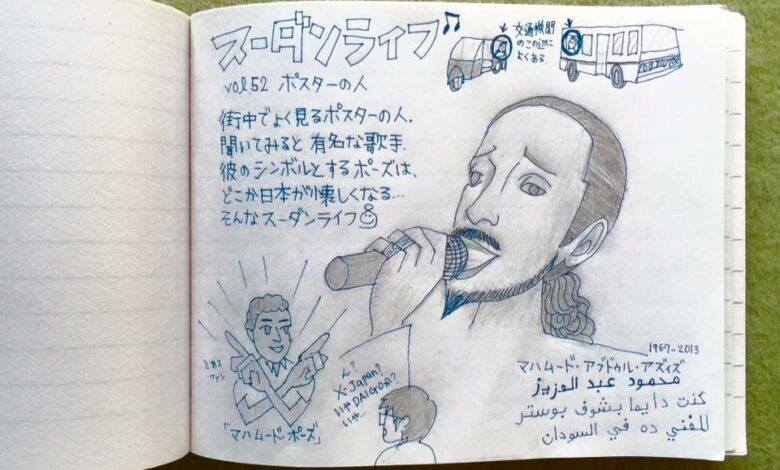 スーダンライフ♪
vol.52 ポスターの人
交通機関
のこの辺に
よくある.
街中でよく見るポスターの人.
聞いてみると 有名な歌手.
彼のシンボルとするポーズは、
どこか日本が懐しくなる…
そんなスーダンライフ
とある
ファン
「マハムード・ポーズ」
ん?
X-Japan?
いやDAIGOか?
いや…
1967-2013
マハムード・アブドゥル・アズィズ
محمود عبد العزيز
كنت دايما بشوف بوستر
للمغني ده في السودان